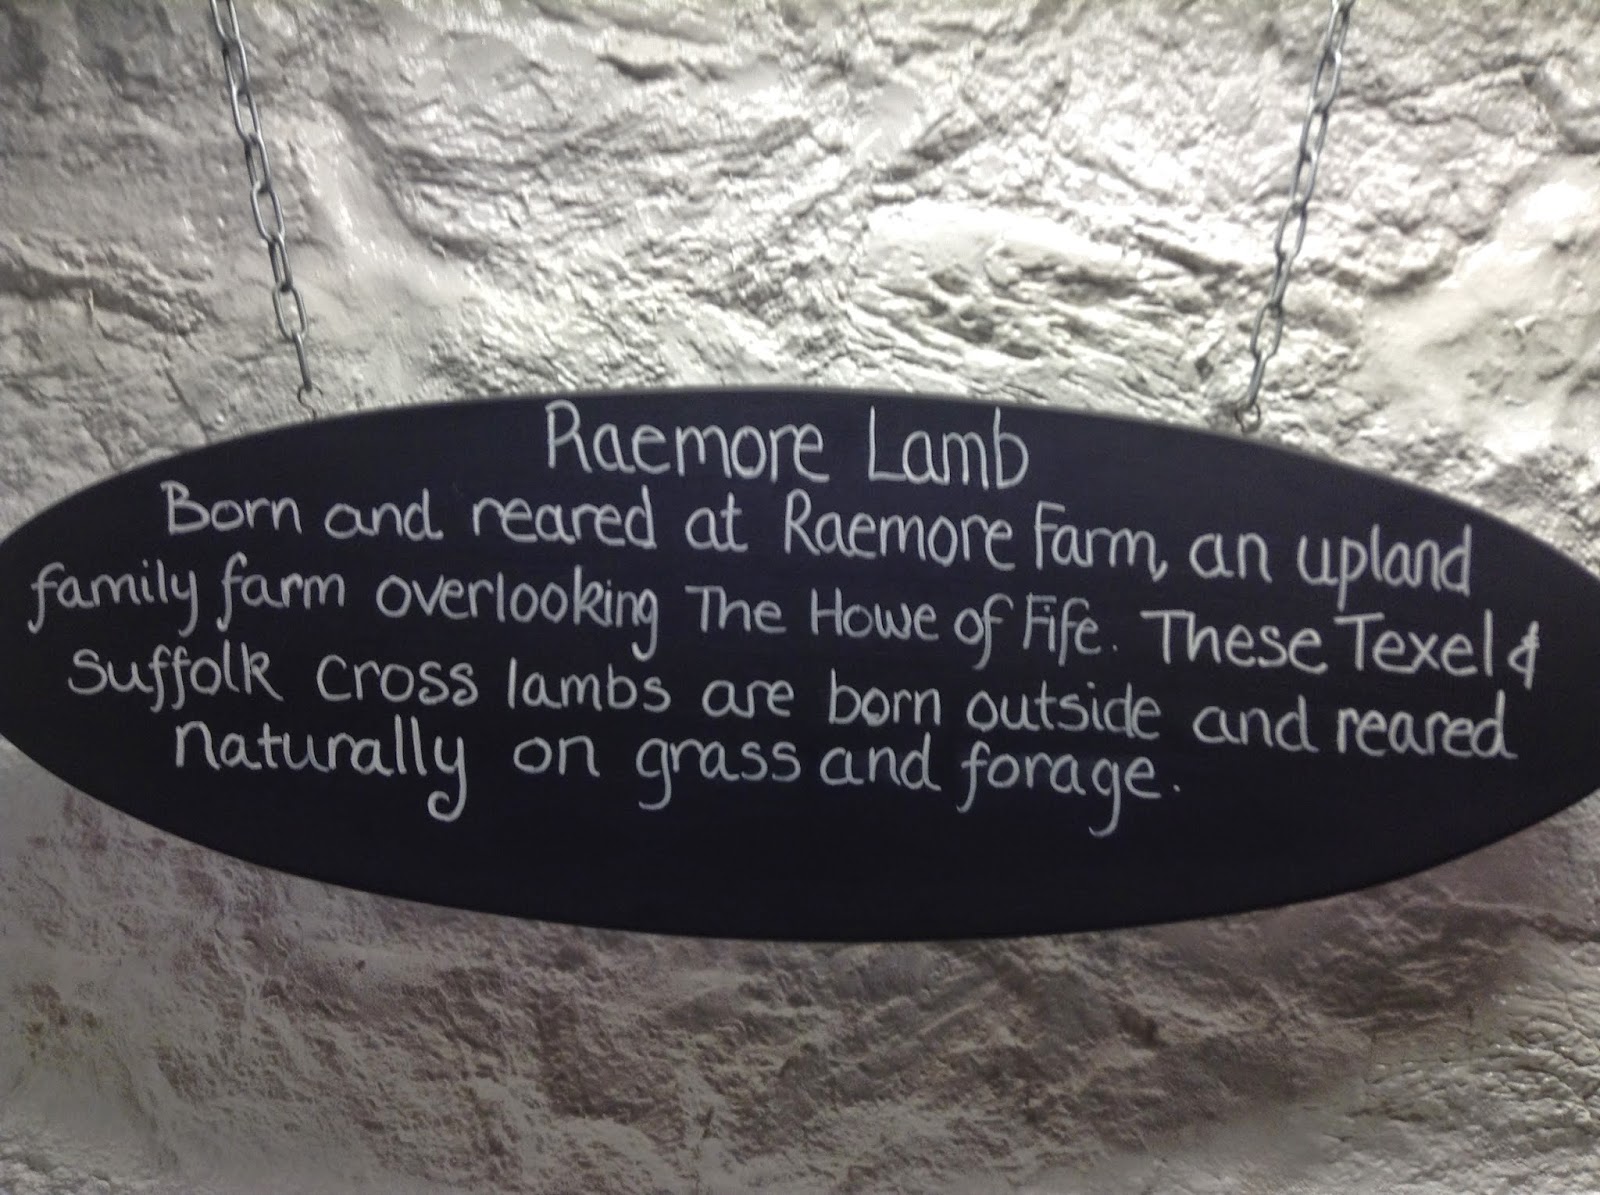 Raemore Lamb
Born and reared at Raemore Farm, an upland
family farm overlooking The Howe of Fife. These Texel &
Suffolk cross lambs are born outside and reared
naturally on grass and forage.